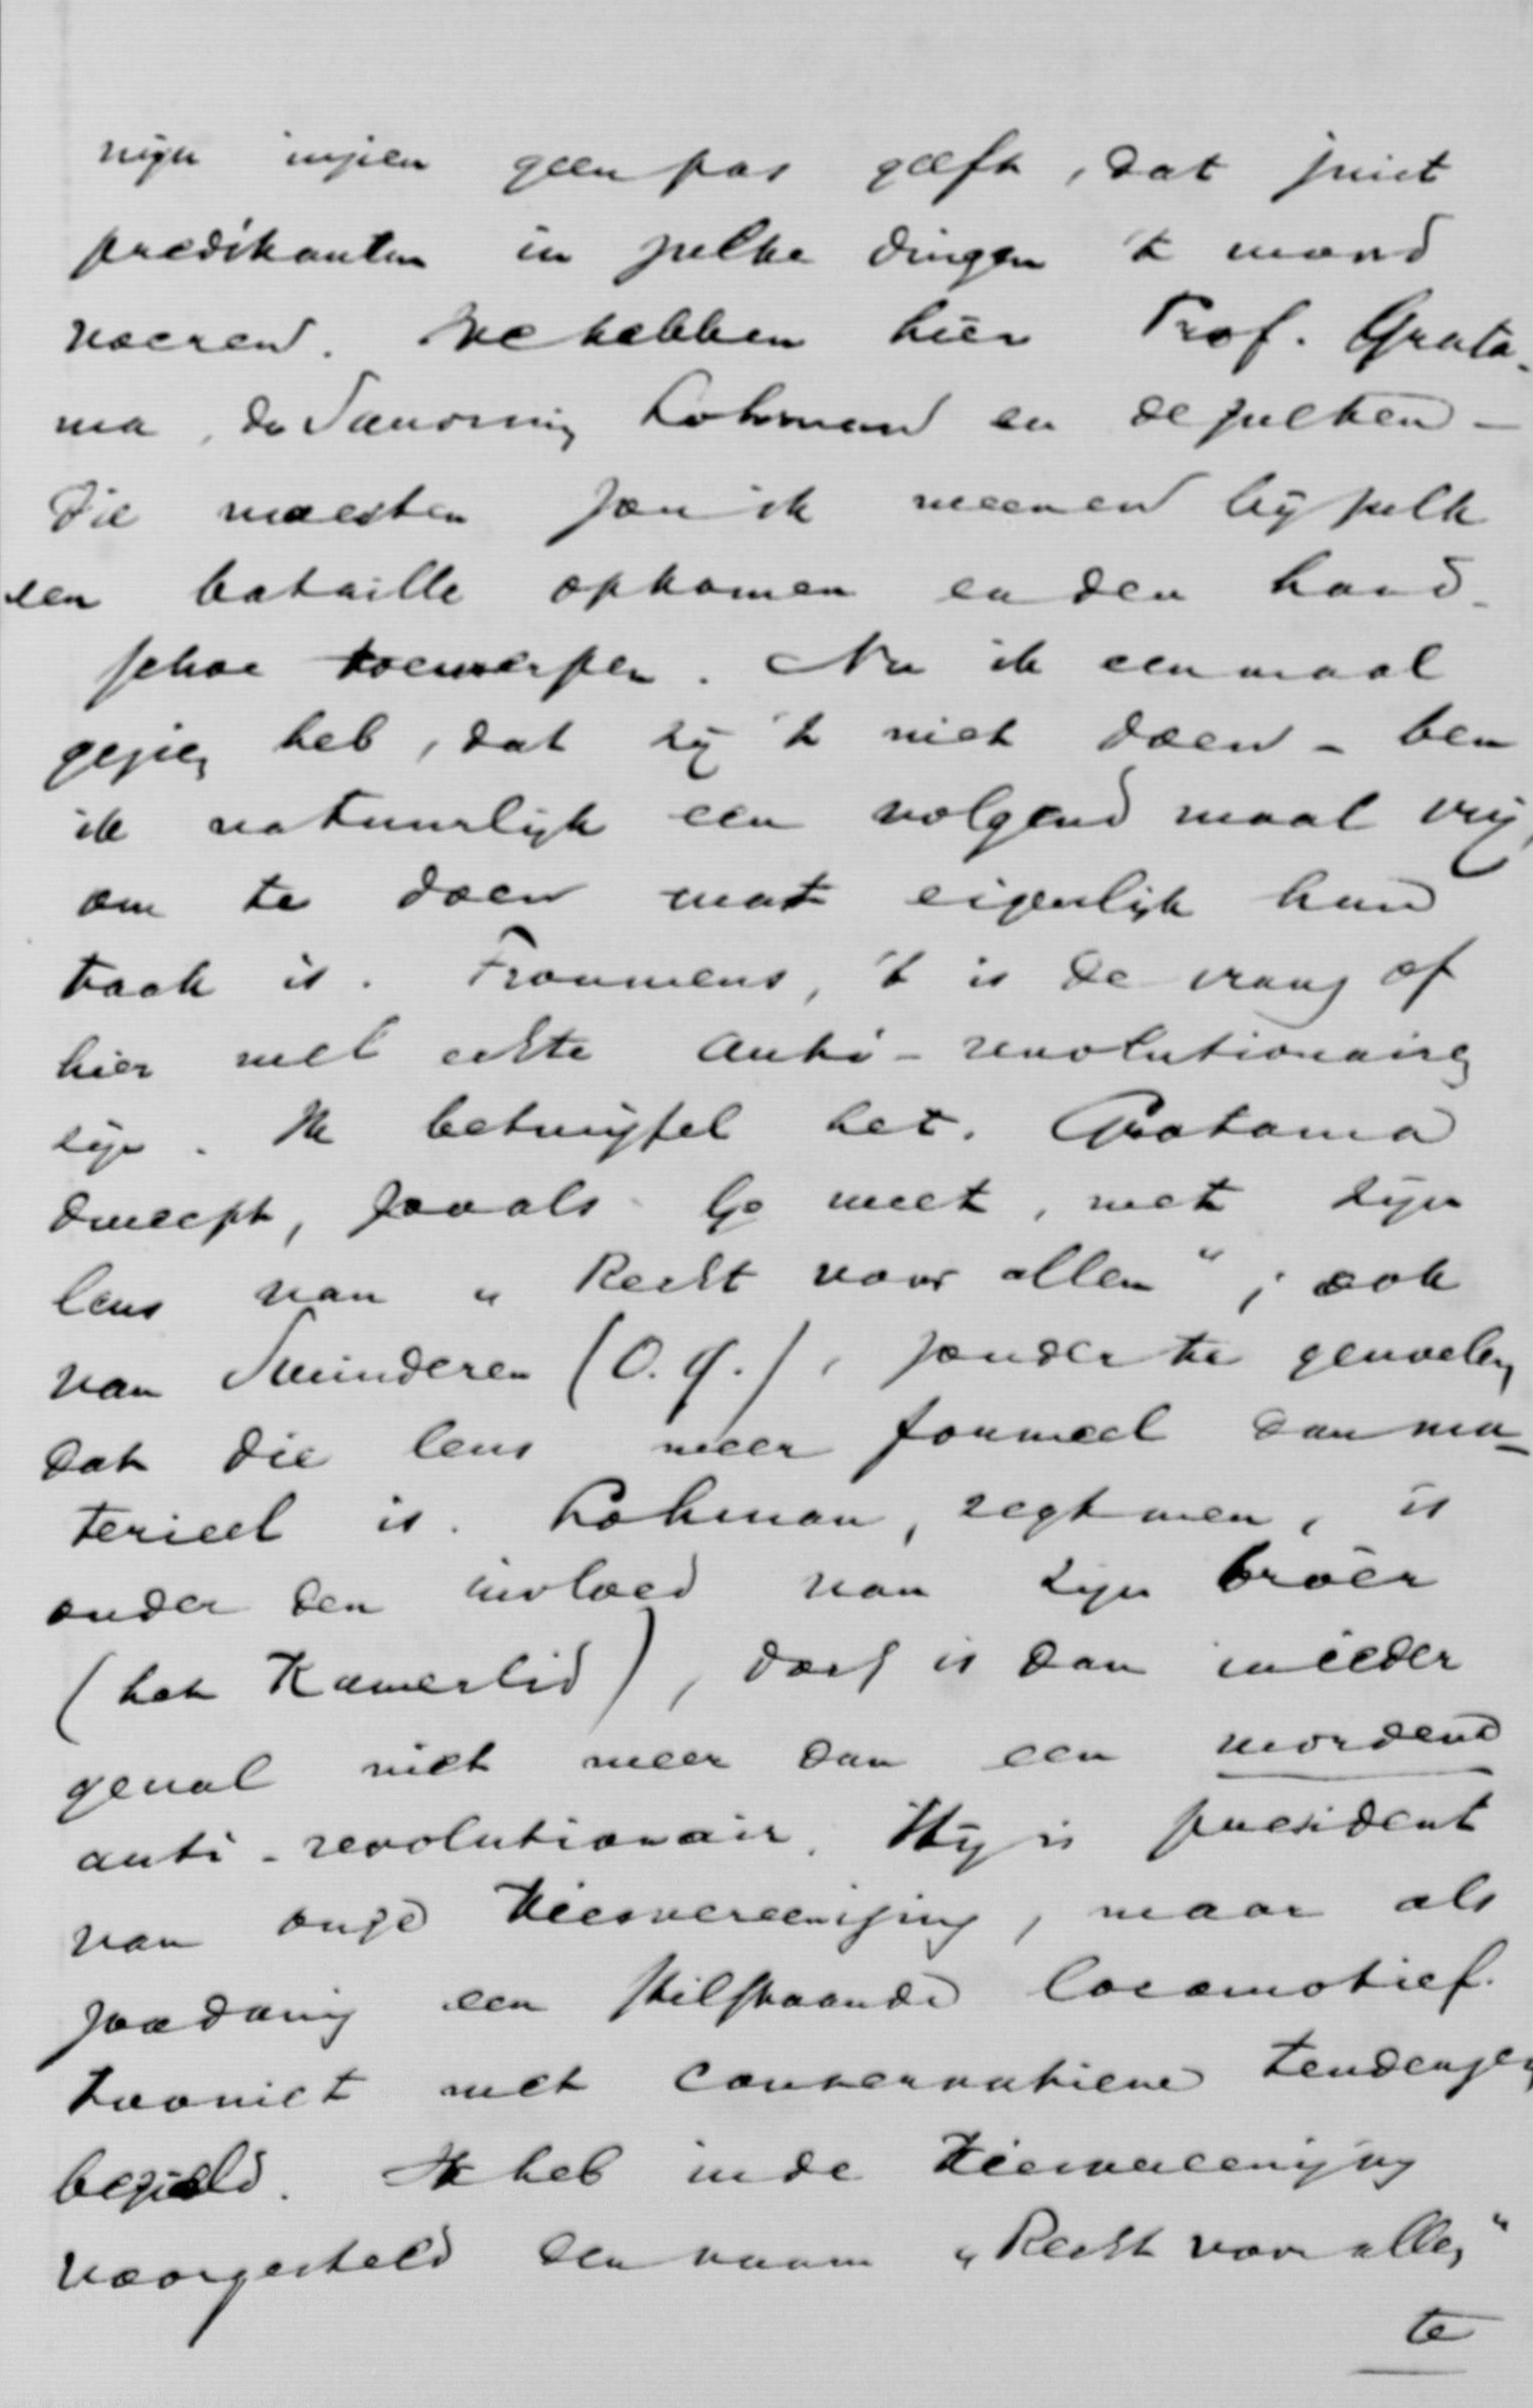 mijn inzien geen pas geeft, dat juist
predikanten in zulke dingen 't woord
voeren. We hebben hier Prof. Grata-
ma, de Savornin Lohman en de zulken -
die moesten zou ik meenen bij zulk
een bataille opkomen en den hand-
schoe toewerpen. Nu ik eenmaal
gezien heb, dat zij 't niet doen - ben
ik natuurlijk een volgend maal vrij,
om te doen wat eigenlijk hun
taak is. Trouwens, 't is de vraag of
hier wel echte anti-revolutionairen
zijn. Ik betwijfel het. Gratama
dweept, zooals Ge weet, met zijn
leus van „Recht voor allen"; ook
van Swinderen (O.Q.), zonder te gevoelen,
dat die leus meer formeel dan ma-
terieel is. Lohman, zegt men, is
onder den invloed van zijn broer
(het Kamerlid), doch is dan in ieder
geval niet meer dan een wordend
anti-revolutionair. Hij is president
van onze Kiesvereeniging, maar als
zoodanig een stilstaande locomotief.
zoo niet met conservatieve tendenzen
bezield. Ik heb in de Kiesvereeniging
voorgesteld den naam „Recht voor allen"
te